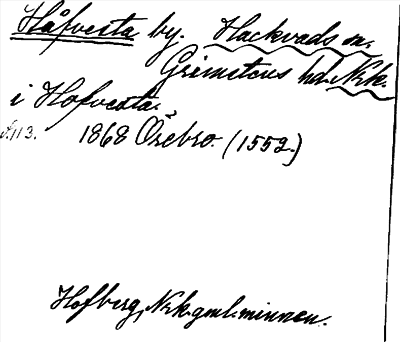 Håfvesta by. Hackvads sn.
Grimstens hd. Nrk.
i Hofvesta.
s. 113. 1868 Örebro. (1552.)
Hofberg, Nrk. gml. minnen.